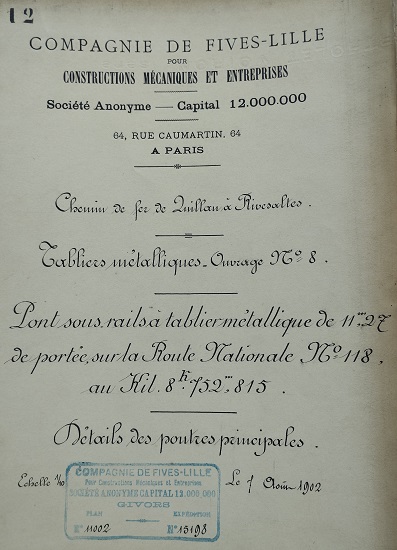 12
COMPAGNIE DE FIVES-LILLE
POUR
CONSTRUCTIONS MÉCANIQUES ET ENTREPRISES
Société Anonyme — Capital 12.000.000
64, RUE CAUMARTIN, 64
A PARIS
Chemin de fer de Quillan à Rivesaltes.
Tabliers métalliques - Ouvrage Nº 8.
Pont sous rails à tablier métallique de 11m,27
de portée, sur la Route Nationale Nº 118,
au Kil. 8k,752m,815.
Détails des poutres principales.
Echelle
Le 7 Août 1902
COMPAGNIE DE FIVES-LILLE
Pour Constructions Mécaniques et Entreprises
SOCIÉTÉ ANONYME CAPITAL 12.000.000
GIVORS
PLAN EXPÉDITION
Nº 11002 Nº 15198